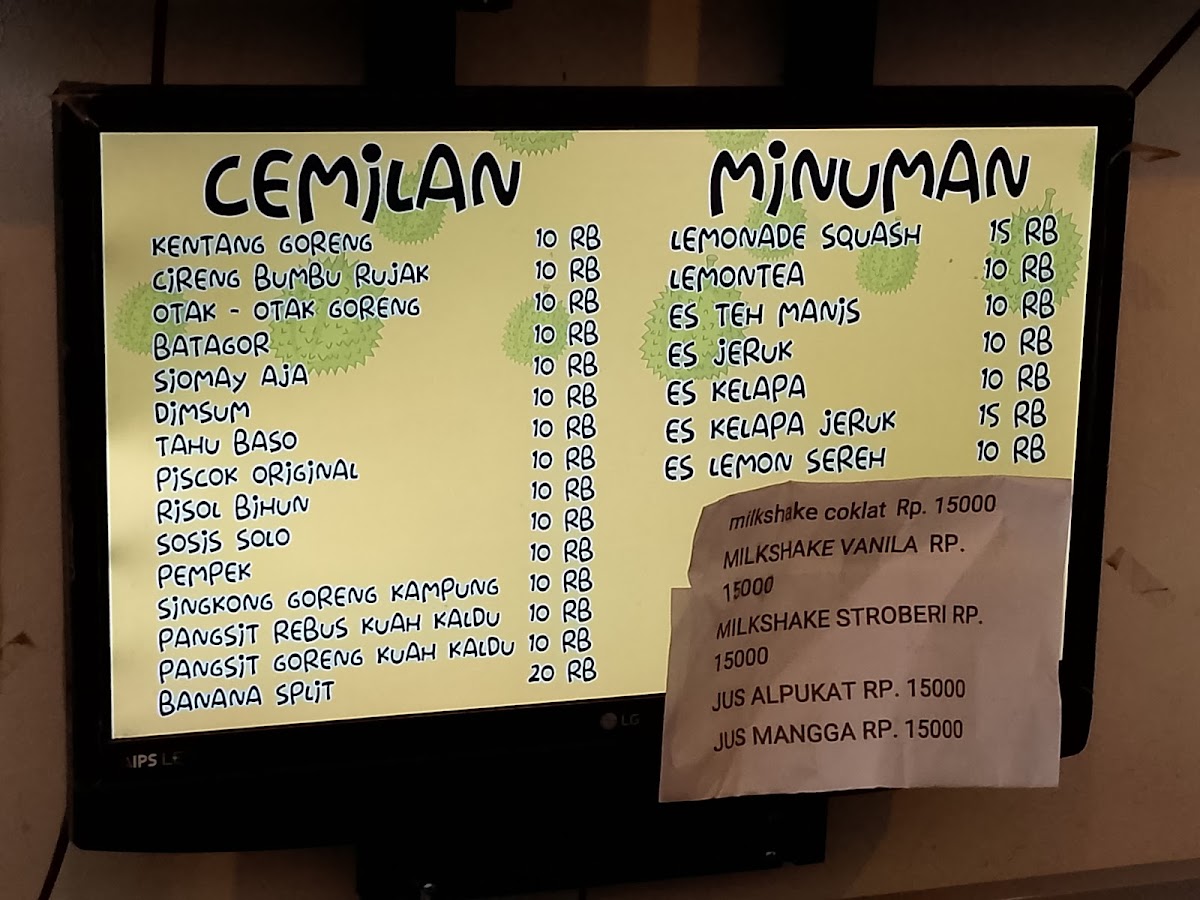 CEMILAN
KENTANG GORENG 10 RB
CIRENG BUMBU RUJAK 10 RB
OTAK - OTAK GORENG 10 RB
BATAGOR 10 RB
SIOMAY AJA 10 RB
DIMSUM 10 RB
TAHU BASO 10 RB
PISCOK ORIGINAL 10 RB
RISOL BIHUN 10 RB
SOSIS SOLO 10 RB
PEMPEK 10 RB
SINGKONG GORENG KAMPUNG 10 RB
PANGSIT REBUS KUAH KALDU 10 RB
PANGSIT GORENG KUAH KALDU 10 RB
BANANA SPLIT 20 RB
MINUMAN
LEMONADE SQUASH 15 RB
LEMONTEA 10 RB
ES TEH MANIS 10 RB
ES JERUK 10 RB
ES KELAPA 10 RB
ES KELAPA JERUK 15 RB
ES LEMON SEREH 10 RB
milkshake coklat Rp. 15000
MILKSHAKE VANILA RP.
15000
MILKSHAKE STROBERI RP.
15000
JUS ALPUKAT RP. 15000
JUS MANGGA RP. 15000
LG
IPS LE